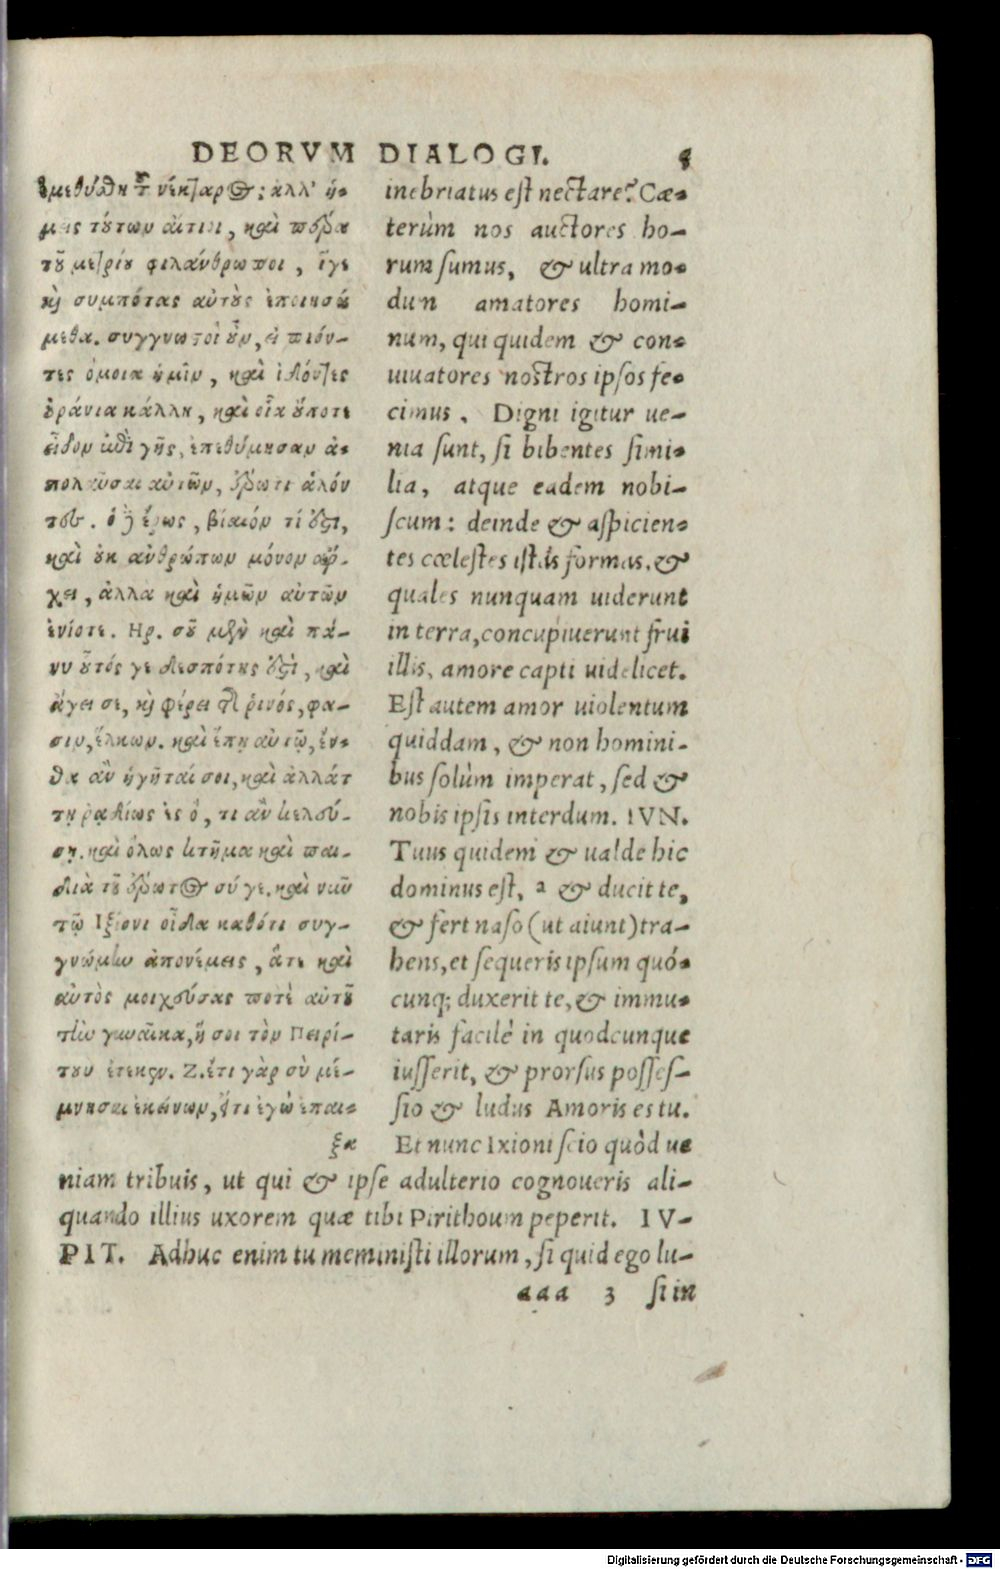 DEORVM DIALOGI. 5
ἐμεθύσθη τοῦ νέκταρος; ἀλλ' ἡ-
μεῖς τούτων αἴτιοι, καὶ πέρα
τοῦ μετρίου φιλάνθρωποι, οἵγε
καὶ συμπότας αὐτοὺς ἐποιησά
μεθα. συγγνωστοὶ οὖν, εἰ πιόν-
τες ὅμοια ἡμῖν, καὶ ἰδόντες
οὐράνια κάλλη, καὶ οἷα οὔποτε
εἶδον ἐπὶ γῆς, ἐπεθύμησαν ἀ-
πολαῦσαι αὐτῶν, ἔρωτι ἁλόν
τες. ὁ δ' ἔρως, βίαιόν τί ἐστι,
καὶ οὐκ ἀνθρώπων μόνον ἄρ-
χει, ἀλλὰ καὶ ἡμῶν αὐτῶν
ἐνίοτε. Ηρ. σοῦ μὲν καὶ πά-
νυ οὗτός γε δεσπότης ἐστὶ, καὶ
ἄγει σε, καὶ φέρει τῆς ῥινός, φα-
σιν, ἕλκων. καὶ ἕπῃ αὐτῷ, ἔν-
θα ἂν ἡγῆταί σοι, καὶ ἀλλάτ
τῃ ῥᾳδίως ἐς ὅ, τι ἂν κελεύ-
σῃ. καὶ ὅλως κτῆμα καὶ παι-
διὰ τοῦ ἔρωτος σύ γε. καὶ νῦν
τῷ Ἰξίονι οἶδα καθότι συγ-
γνώμην ἀπονέμεις, ἅτε καὶ
αὐτὸς μοιχεύσας ποτὲ αὐτοῦ
τὴν γυναῖκα, ἥ σοι τὸν Πειρί-
θουν ἔτεκεν. Ζ. ἔτι γὰρ σὺ μέ-
μνησαι ἐκείνων, εἴ τι ἐγὼ ἔπαι-
ξα
inebriatus est nectare? Cæ-
terùm nos auctores ho-
rum sumus, & ultra mo-
dun amatores homi-
num, qui quidem & con-
uiuatores nostros ipsos fe-
cimus. Digni igitur ue-
nia sunt, si bibentes simi-
lia, atque eadem nobi-
scum: deinde & aspicien-
tes cœlestes istas formas, &
quales nunquam uiderunt
in terra, concupiuerunt frui
illis, amore capti uidelicet.
Est autem amor uiolentum
quiddam, & non homini-
bus solùm imperat, sed &
nobis ipsis interdum. IVN.
Tuus quidem & ualde hic
dominus est, a & ducit te,
& fert naso (ut aiunt) tra-
hens, et sequeris ipsum quó-
cunq; duxerit te, & immu-
taris facilè in quodcunque
iusserit, & prorsus posses-
sio & ludus Amoris es tu.
Et nunc Ixioni scio quòd ue
niam tribuis, ut qui & ipse adulterio cognoueris ali-
quando illius uxorem quæ tibi Pirithoum peperit. IV-
PIT. Adhuc enim tu meministi illorum, si quid ego lu-
aaa 3 si in
Digitalisierung gefördert durch die Deutsche Forschungsgemeinschaft - DFG